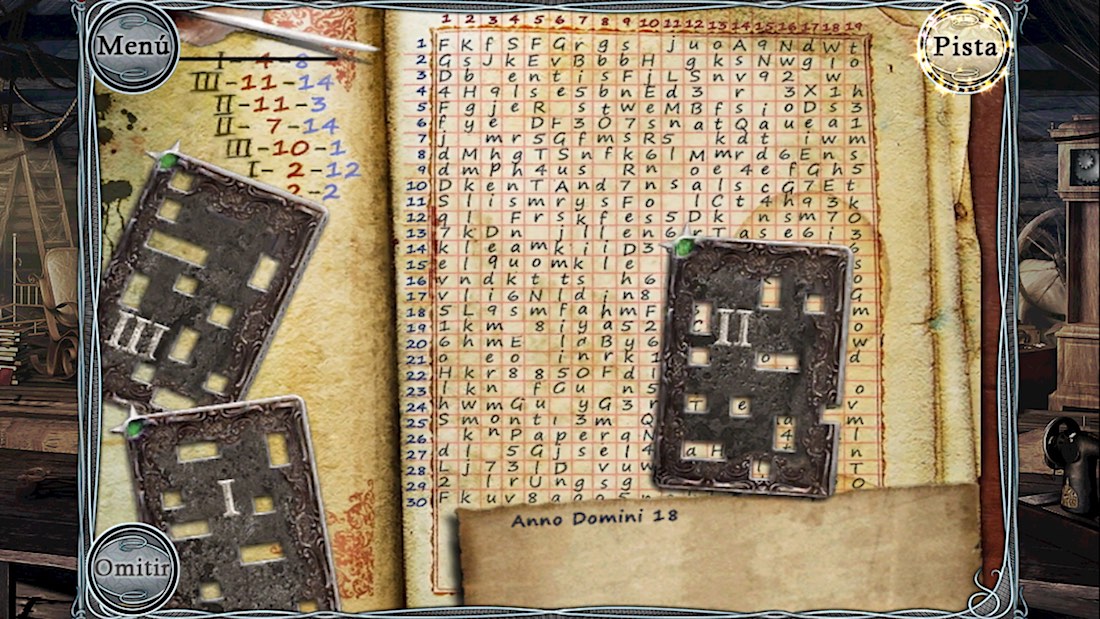 Menú
Pista
I-4-8
III-11-14
II-11-3
II-7-14
III-10-1
I-2-12
2-2
III
I
II
Omitir
1 2 3 4 5 6 7 8 9 10 11 12 13 14 15 16 17 18 19
1 F K f S F G r g s j u o A 9 N d W t
2 G s J k E v B b b H g k s N w g l o
3 D b e n t i s F j L S n v 9 2 w
4 4 H 9 l s e 5 b n E d 3 r 3 X 1 h
5 F g j e R s t w e M B f s i o D s 3
6 f y e D F 3 O 7 s n a t Q a u e a 1
7 j m r 5 G f m s R 5 k d t i w m
8 d M h g T S n f k 6 l M m r d 6 E n s
9 d m P h 4 u s R n o e 4 e f G h 5
10 D k e n T A n d 7 n s a l s c G 7 E t
11 S l i s m r y s F o l C t 4 h 9 3 k
12 g l F r s k f e s 5 D k n s m 7 0
13 7 k D n j l l e n 6 r T a s e 6 i 3
14 k l e a m k i i D 3 6
15 e l q u o m k l e s
16 v n d k t t s h 6
17 v l i 6 N l d j n 8 G
18 5 L 9 s m f a h m F m
19 1 k m 8 i y a 5 2 c o
20 6 h m E l a B y 6 w
21 o e o i n r k 1 o d
22 H k r 8 8 5 O F d l
23 l k n f G u n 5 o
24 h w m G u y G 3 r T e v
25 S m o n t i 3 m Q a m
26 k n P a p e r q N 4 l
27 d l 5 G j s e l 4 a H n
28 L j 7 3 l D v u w l T
29 2 l r U n g s g o
30 F k u v 8 a g o 5
Anno Domini 18